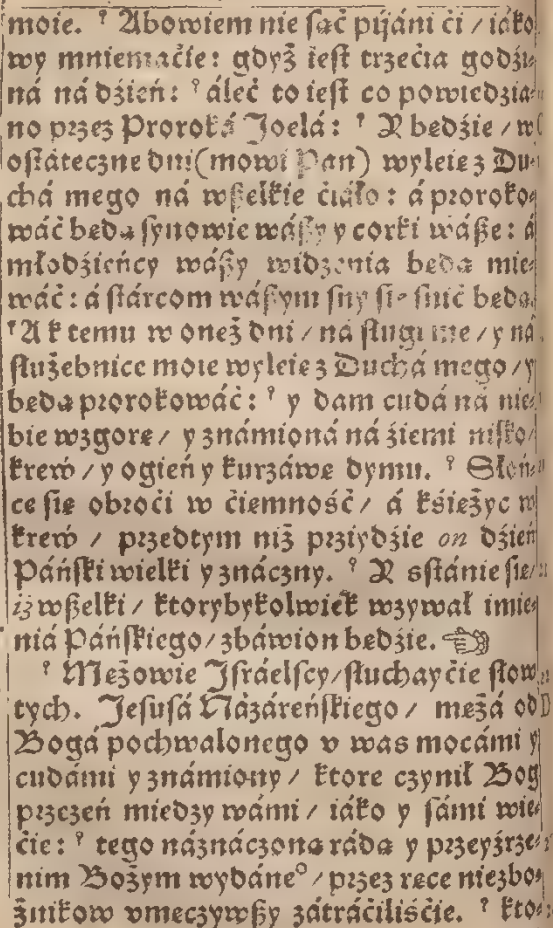 moie. ˀ Abowiem nie ſąć pijáni ći / iáko
wy mniemaćie: gdyż ieſt trzećia godźi⸗
ná ná dźień: ˀ áleć to ieſt co powiedźia⸗
no przez Proroká Joelá: ˀ Y będźie / w
oſtáteczne dni (mowi Pan) wyleię z Du⸗
chá mego ná wßelkie ćiáło: á prorokо⸗
wáć będą ſynowie wáßy y corki wáße: á
młodźieńcy wáßy widzenia będą mie⸗
wáć: á ſtárcom wáßym ſny ſię ſnić będą.
ˀ A k temu w onež dni / ná ſługi me / y ná
ſłużebnice moie wyleię z Duchá mego / y
będą prorokowáć: ˀ y dam cudá ná nie⸗
bie wzgorę / y známioná ná źiemi niſko /
krew / y ogień y kurzáwę dymu. ˀ Słoń⸗
ce ſię obroći w ćiemność / á kśiężyc w
krew / przedtym niż przyidźie on dźień
Páńſki wielki y znáczny. ˀ Y sſtánie ſię /
iż wßelki / ktorybykolwiek wzywał imie⸗
niá Páńſkiego / zbáwion będźie. ☜
ˀ Mężowie Iſráelſcy / ſłuchayćie ſłow
tych. Jeſuſá Názáreńſkiego / mężá od
Bogá pochwalonego v was mocámi y
cudámi y známiony / ktore czynił Bog
przezeń miedzy wámi / iáko y ſámi wie⸗
ćie: ˀ tego náznáczoną rádą y przeyźrze⸗
nim Bożym wydáne° / przez ręce niezbo⸗
żnikow vmęczywßy zátráćiliśćie. ˀ kto⸗